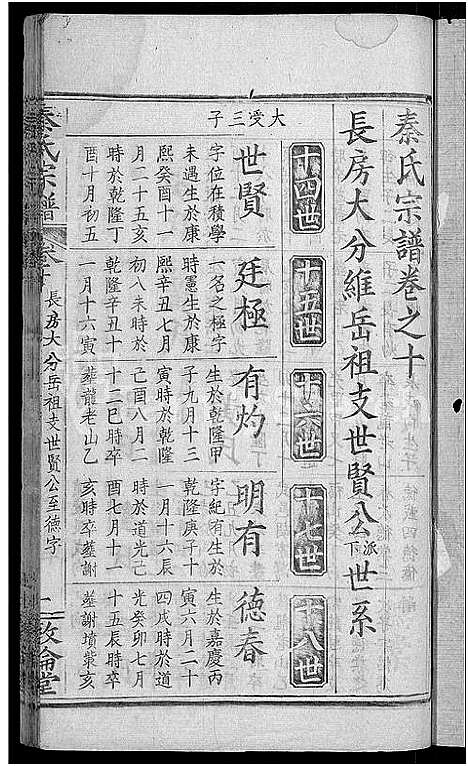 秦氏宗譜卷之十
長房大分維岳祖支世賢公派下世系
十四世
十五世
十六世
十七世
十八世
大受三子
世賢
字位在積學
未遇生於康
熙癸酉十一
月二十五亥
時於乾隆丁
酉十月初五
廷極
一名之極字
時憲生於康
熙辛丑七月
初八未時於
乾隆辛丑十
一月十六寅
有灼
生於乾隆甲
子九月十三
寅時於嘉慶
己酉八月二
十二巳時卒
葬龍老山乙
明有
字紀有生於
乾隆庚子十
一月十六辰
時於道光己
酉七月十一
亥時卒塟謝
德春
生於嘉慶丙
寅六月二十
四戌時於道
光癸卯七月
十五辰時卒
塟謝墳紫亥
秦氏宗譜
卷十
長房大分岳祖支世賢公至德字
二
敦倫堂